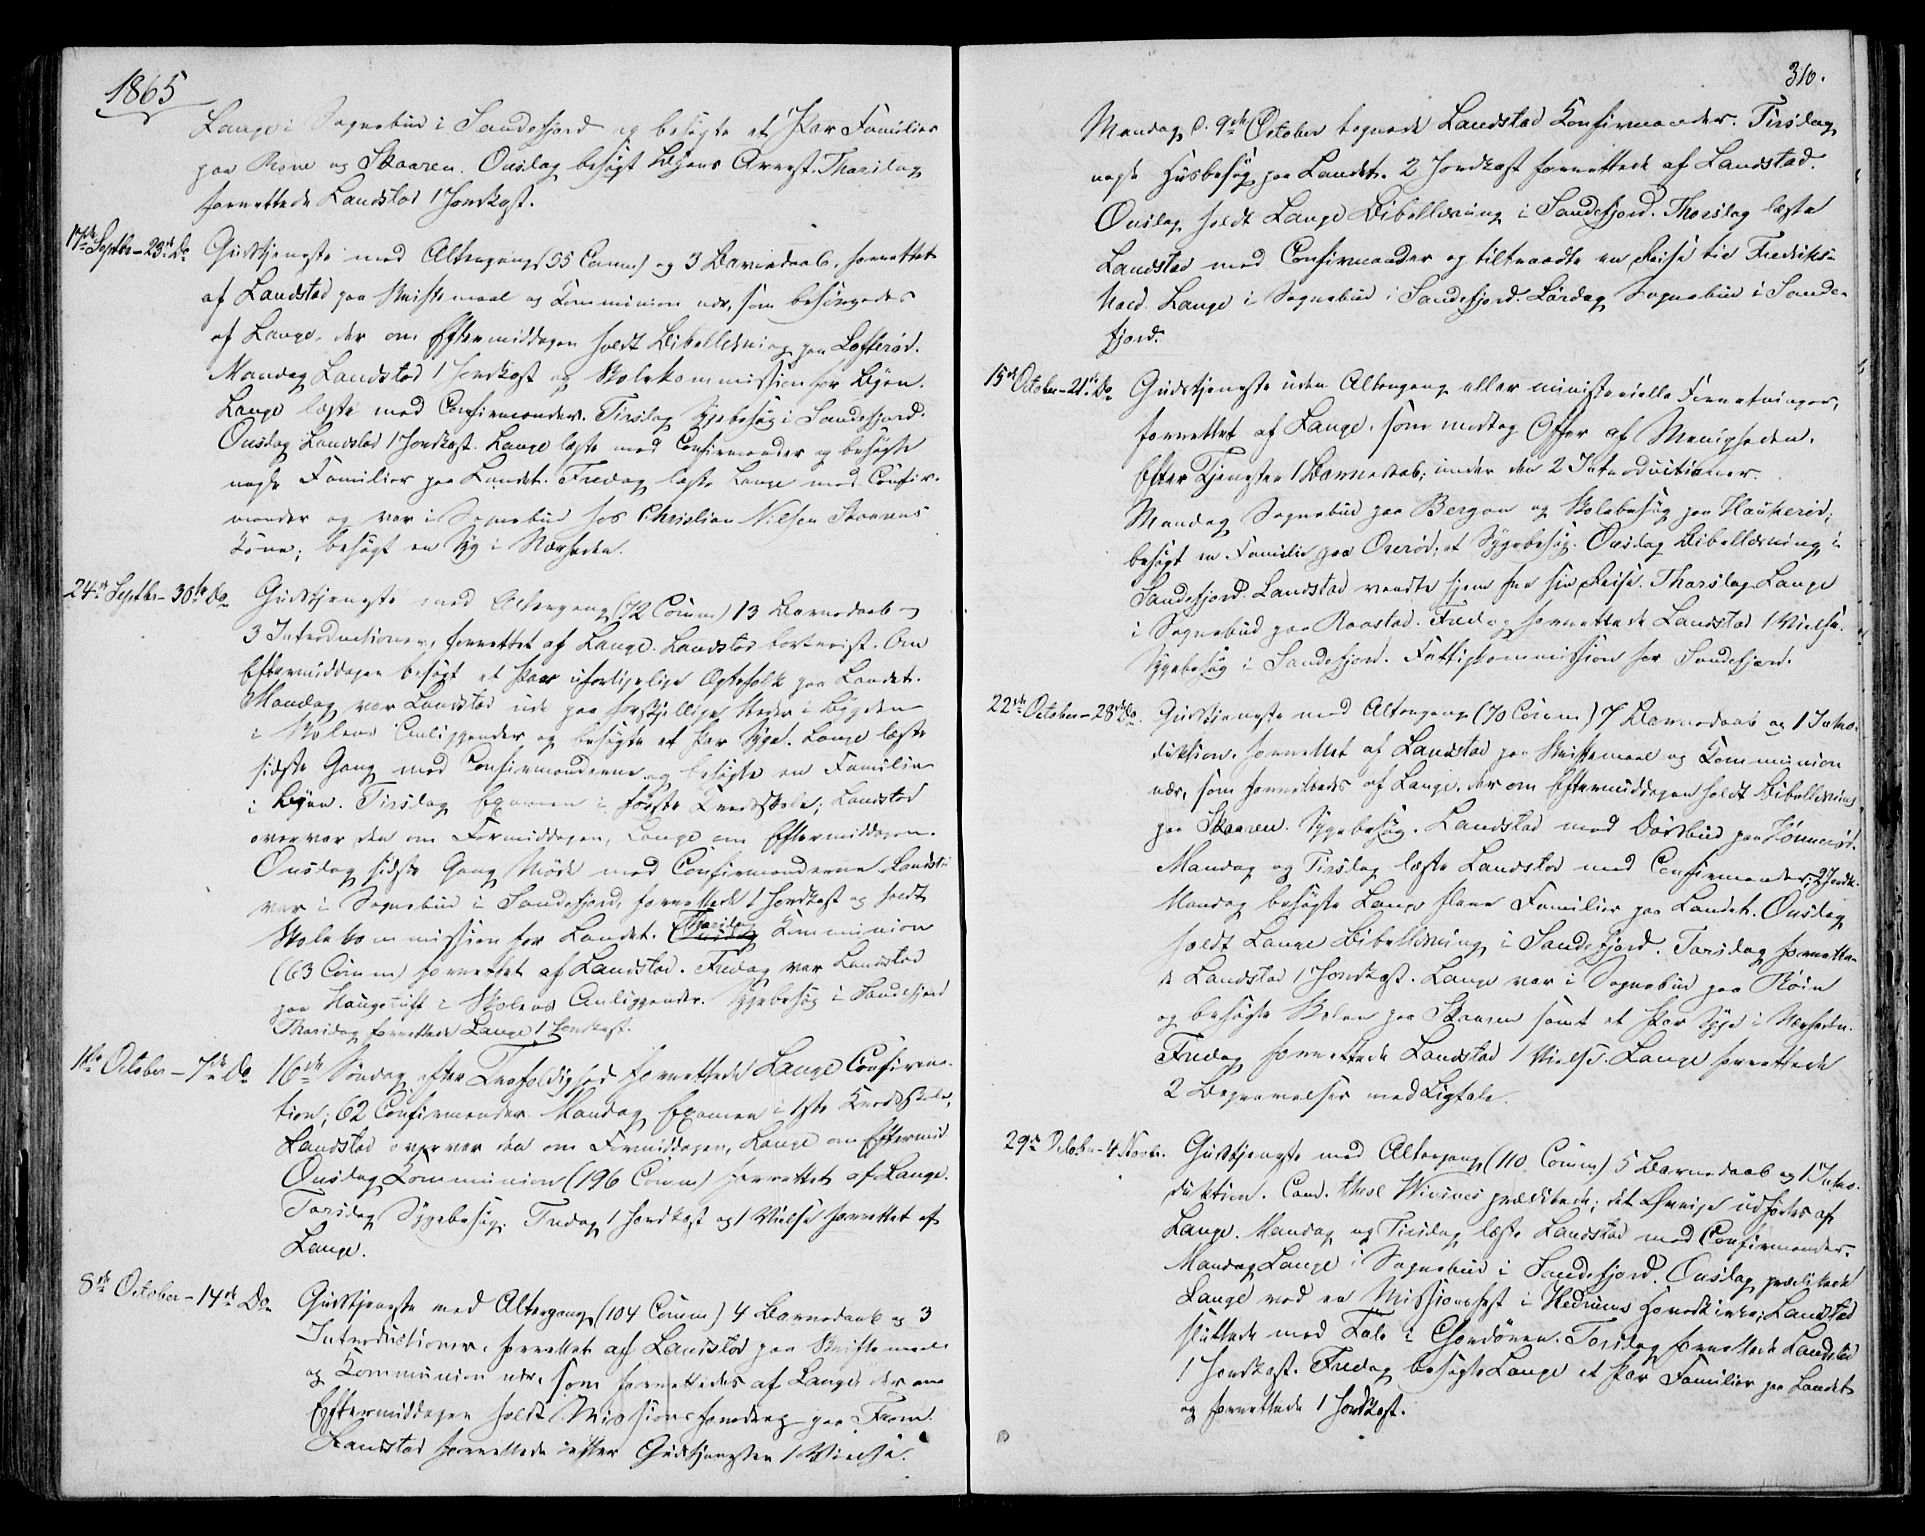 1865
Lange i Sognebud i Sandefjord og besøgte et Par Familier
paa Roue og Skaaren. Onsdag besøgt Byens Arrest. Thorsdag
forrettede Landstad 1 Jordkast.
17de Septbr – 23de Do Gudstjeneste med Altergang (55 Comm) og 3 Barnedaab, forrettet
af Landstad paa Skriftemaal og Kommunion nær, som besørgedes
af Lange, der om Eftermiddagen holdt Bibellæsning paa Lofterød.
Mandag Landstad 1 Jordkast og Skolekommission for Byen.
Lange læste med Confirmander. Tirsdag Sygebesøg i Sandefjord.
Onsdag Landstad 1 Jordkast. Lange læste med Confirmander og besøgte
nogle Familier paa Landet. Fredag læste Lange med Confir-
mander og var i Sognebud hos Christian Nilsen Skaarens
Kone; besøgt en Syg i Nærheden.
24de Septbr – 30te Do Gudstjeneste med Altergang (72 Comm) 13 Barnedaab og
3 Introductioner, forrettet af Lange. Landstad bortreist. Om
Eftermiddagen besøgt et Par uforligelige Ægtefolk paa Landet.
Mandag var Landstad ude paa forskjellige Steder i Bygden
i Skolens Anliggender og besøgte et Par Syge. Lange læste
sidste Gang med Confirmanderne og besøgte en Familie
i Byen. Tirsdag Examen i første Kredsskole; Landstad
overvar den om Formiddagen, Lange om Eftermiddagen.
Onsdag sidste Gang Møde med Confirmanderne. Landst:
var i Sognebud i Sandefjord, forrettede 1 Jordkast og holdt
Skolekommission for Landet. Thorsdag Kommunion
(63 Comm) forrettet af Landstad. Fredag var Landstad
paa Haugetuft i Skolens Anliggender. Sygebesøg i Sandefjord
Thorsdag forrettede Lange 1 Jordkast.
1ste October – 7de Do 16de Søndag efter Trefoldighed forrettede Lange Confirma-
tion; 62 Confirmander. Mandag Examen i 1ste Kredsskole,
Landstad overvar den om Formiddagen, Lange om Eftermid
Onsdag Kommunion (196 Comm) forrettet af Lange.
Torsdag Sygebesøg. Fredag 1 Jordkast og 1 Vielse forrettet af
Lange.
8de October – 14de Do Gudstjeneste med Altergang (104 Comm) 4 Barnedaab og 3
Introductioner, forrettet af Landstad paa Skriftemaal
og Kommunion nær, som forrettedes af Lange, der om
Eftermiddagen holdt Missionsforedrag paa Fram.
Landstad forrettede efter Gudstjenesten 1 Vielse.
310.
Mandag d. 9de October tegnede Landstad Konfirmander. Tirsdag
nogle Husbesøg paa Landet. 2 Jordkast forrettede af Landstad.
Onsdag holdt Lange Bibellæsning i Sandefjord. Thorsdag læste
Landstad med Confirmander og tiltraadte en Reise til Fredriks-
hald. Lange i Sognebud i Sandefjord. Lørdag Sognebud i Sande-
fjord.
15de October – 21de Do Gudstjeneste uden Altergang eller ministerielle Forretninger,
forrettet af Lange, som modtog Offer af Menigheden.
Efter Tjenesten 1 Barnedaab; under den 2 Introductioner.
Mandag Sognebud paa Bergan og Skolebesøg paa Haukerød;
besøgt en Familie paa Ørerød; et Sygebesøg. Onsdag Bibellæsning i
Sandefjord. Landstad vendte hjem fra sin Reise. Thorsdag Lange
i Sognebud paa Raastad. Fredag forrettede Landstad 1 Vielse.
Sygebesøg i Sandefjord. Fattigkommission for Sandefjord.
22de October – 28de Do. Gudstjeneste med Altergang (70 Comm) 7 Barnedaab og 1 Intro-
duktion, forrettet af Landstad paa Skriftemaal og Kommunion
nær, som forrettedes af Lange, der om Eftermiddagen holdt Bibellæsning
paa Skaaren. Sygebesøg. Landstad med Dødsbud paa Tønnerød.
Mandag og Tirsdag læste Landstad med Confirmander; 2 Jordk.
Mandag besøgte Lange flere Familier paa Landet. Onsdag
holdt Lange Bibellæsning i Sandefjord. Torsdag forrette-
de Landstad 1 Jordkast. Lange var i Sognebud paa Roin
og besøgte Skolen paa Skaaren samt et Par Syge i Nærheden.
Fredag forrettede Landstad 1 Vielse. Lange forrettede
2 Begravelser med Ligtale.
29de Octobr – 4 Novbr. Gudstjeneste med Altergang (110 Comm) 5 Barnedaab og 1 Intro-
duktion. Cand. theol prædikede; det Øvrige udførtes af
Lange. Mandag og Tirsdag læste Landstad med Confirmander.
Mandag Lange i Sognebud i Sandefjord. Onsdag prædikede
Lange ved en Missionsfest i Hedrums Hovedkirke; Landstad
sluttede med Tale i Chordøren. Torsdag forrettede Landstad
1 Jordkast. Fredag besøgte Lange et Par Familier paa Landet
og forrettede 1 Jordkast.